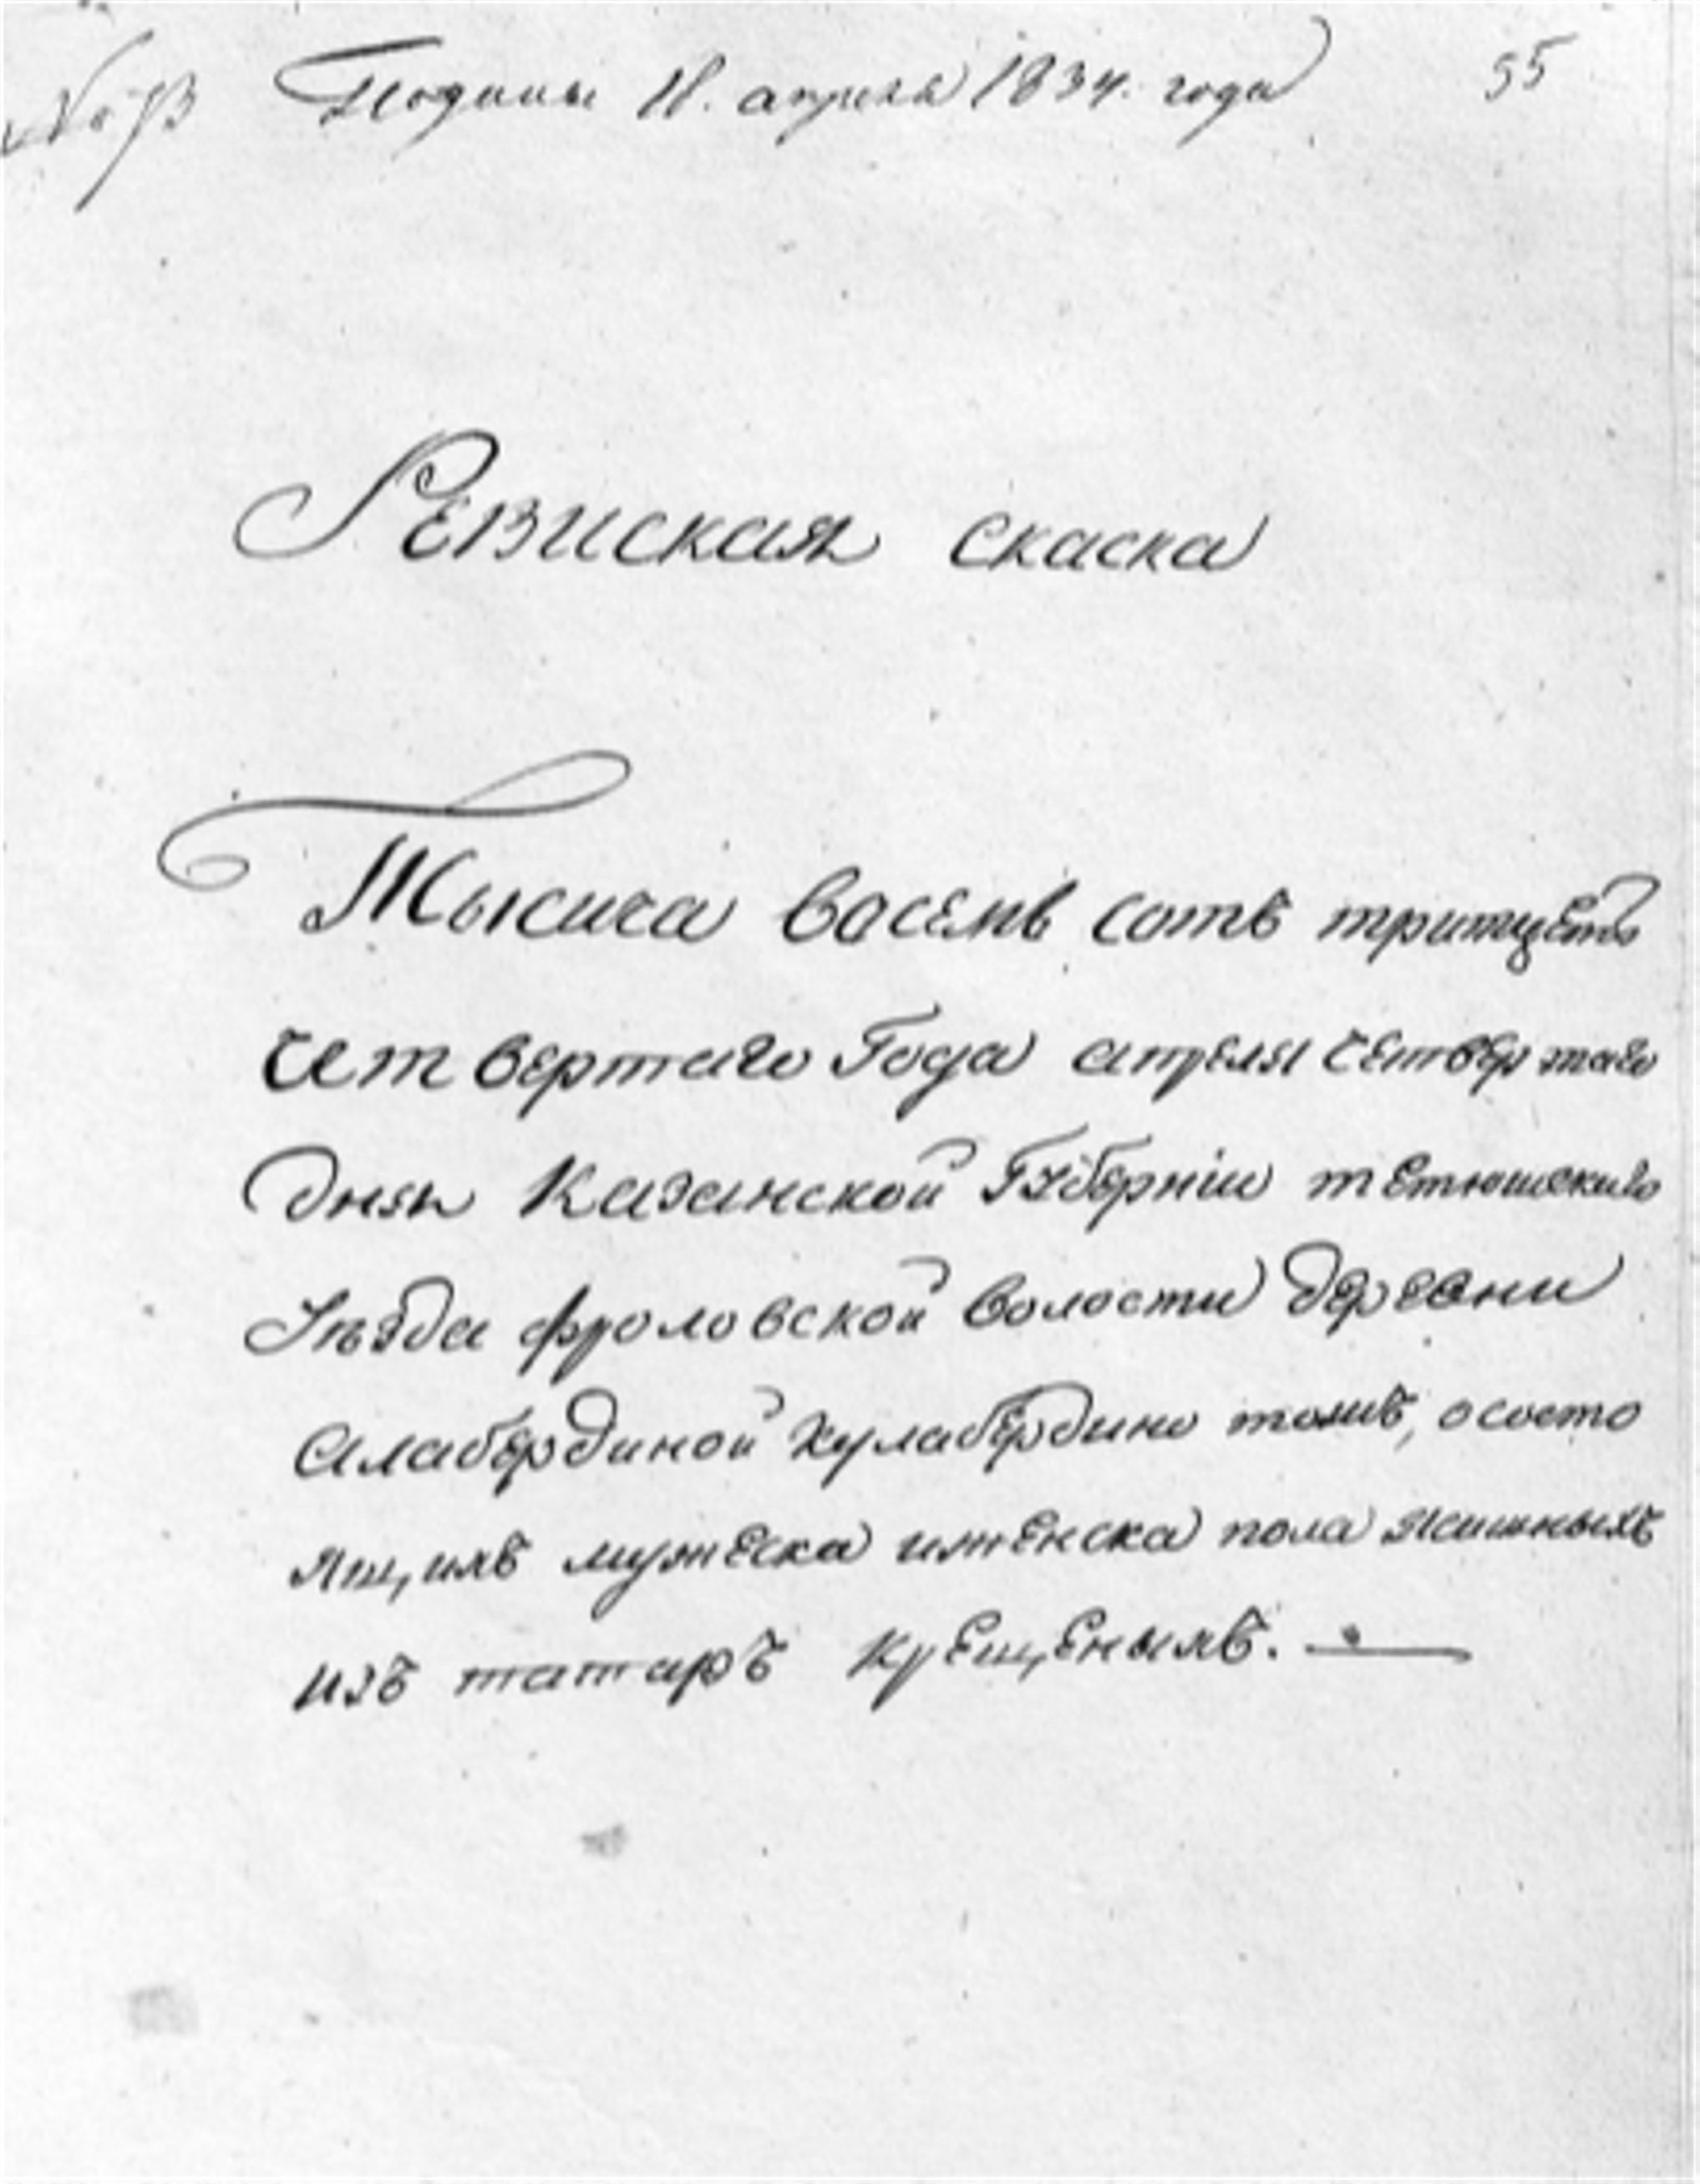 Подана 18. апреля 1834. года 55
Ревиская скаска
Тысича восемь сотъ тритцеть
четвертаго Года апреля четвертаго
дня Казанской Губерніи тетюшскаго
Уѣзда фроловской волости деревни
Алабердиной Кулабердино тожъ, ососто
ящихъ мужеска иженска пола
изъ татаръ крещеныхъ.